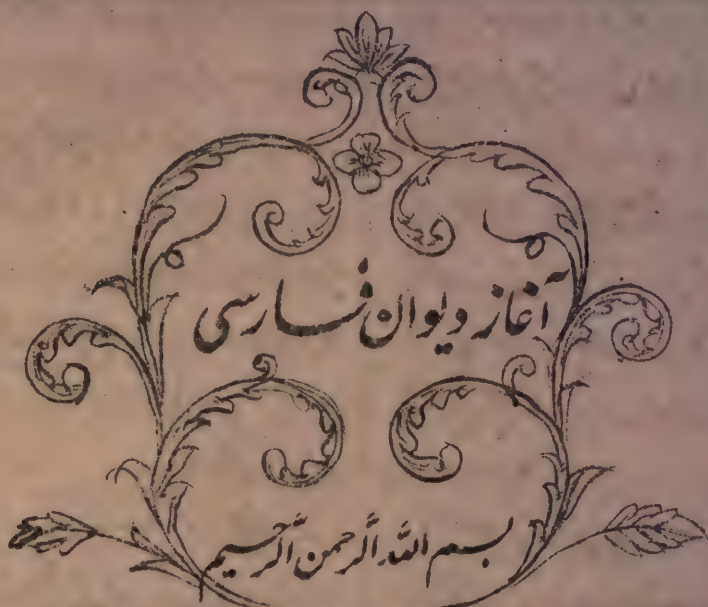 آغاز دیوان فارسی
بسم اللہ الرحمن الرحیم